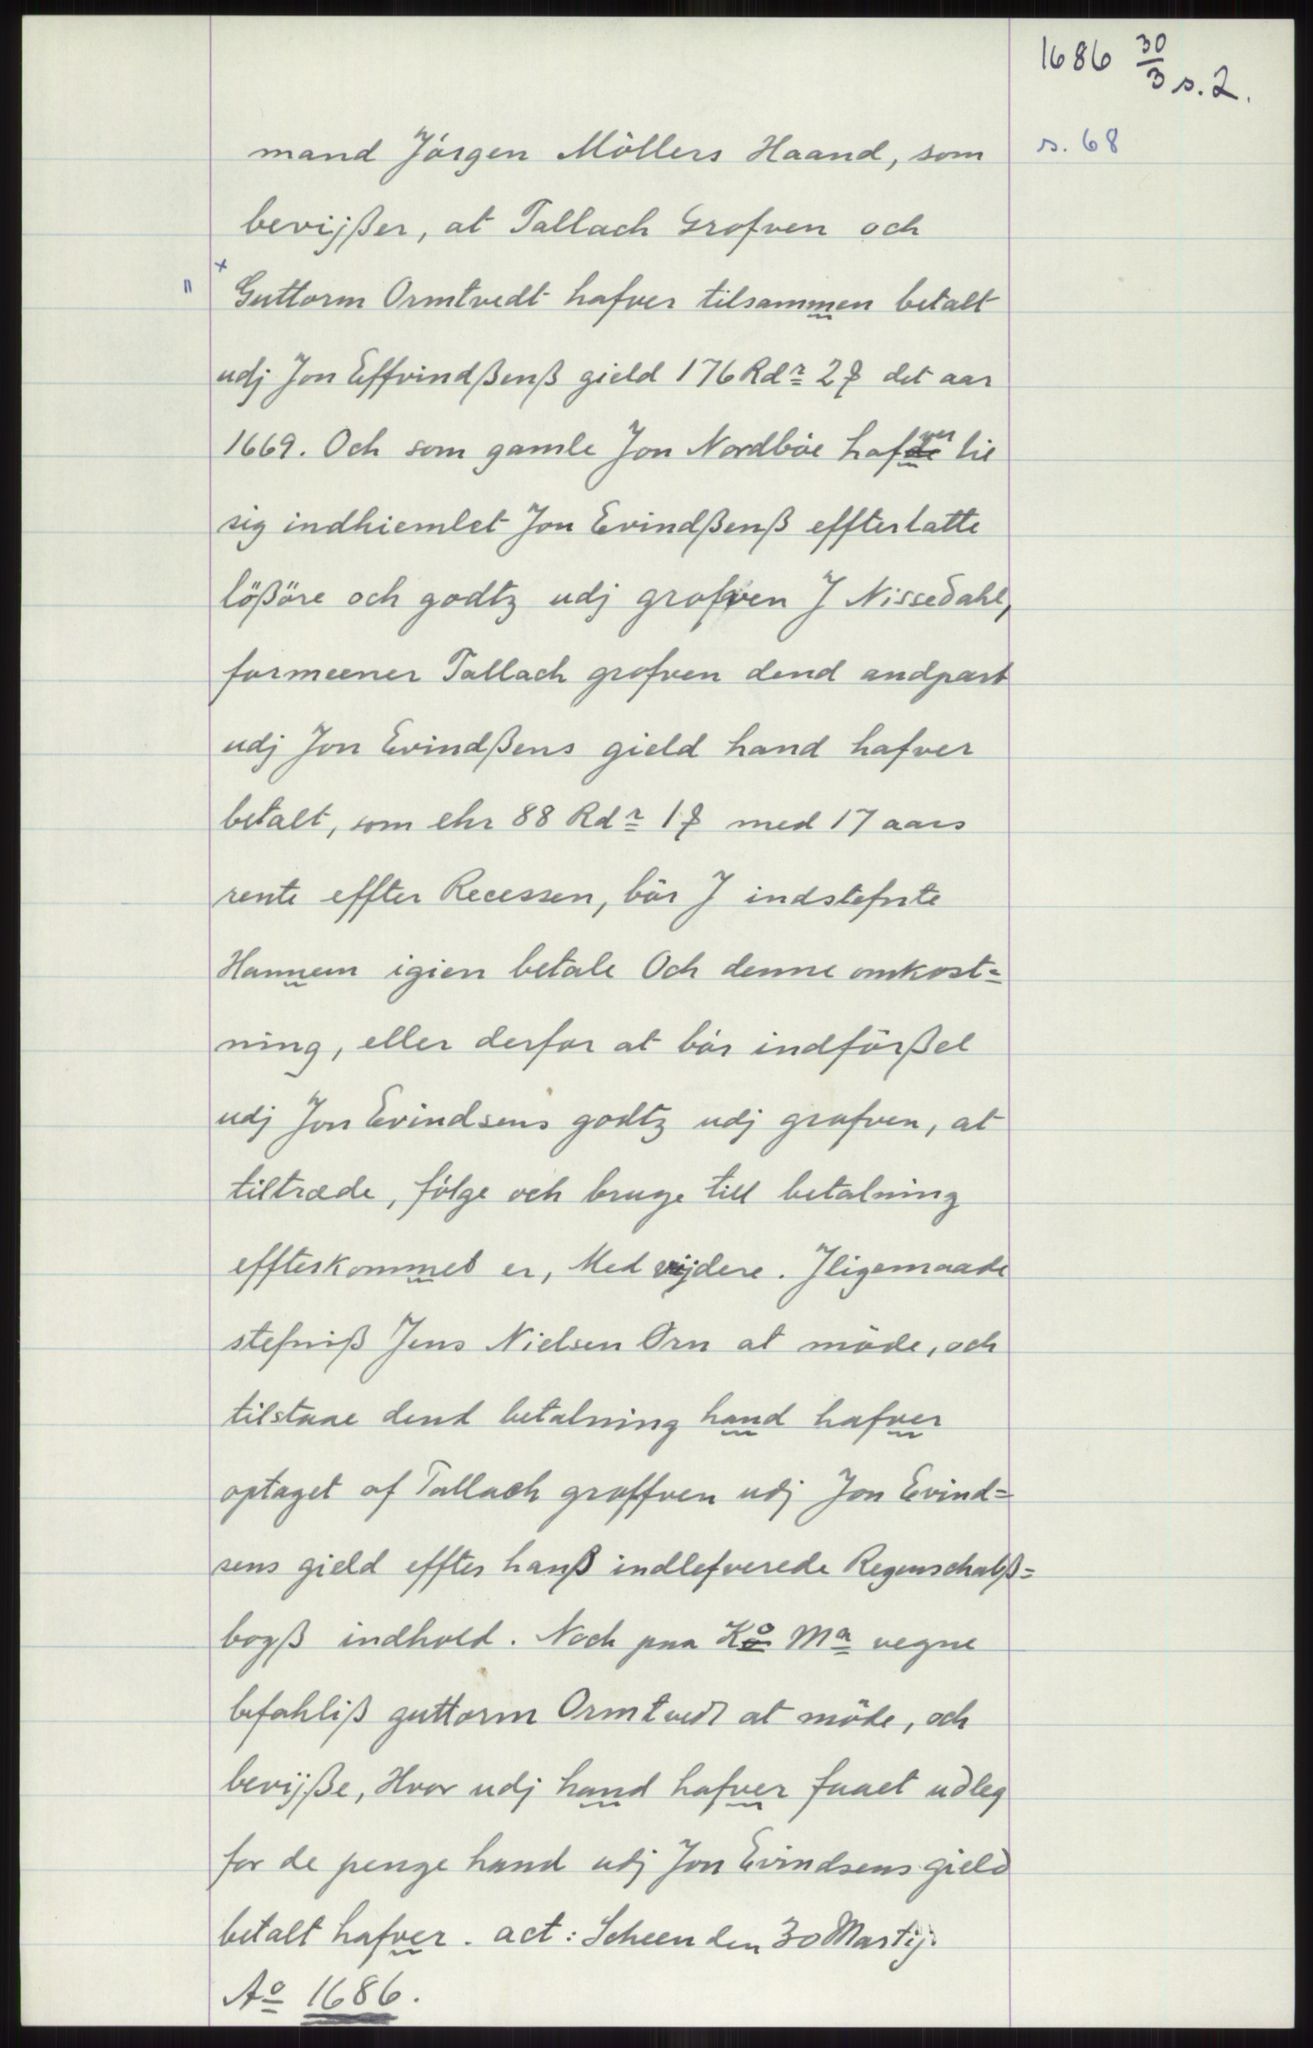 1686 30/3 s. 2.
s. 68
mand Jörgen Möllers Haand, som
bevijßer, at Tallach Grofven och
" + Guttorm Ormtvedt hafver tilsammen betalt
udj Jon Effvindßenß gield 176 Rdr 2 ß det aar
1669. Och som gamle Jon Nordböe hafver til
sig indhiemlet Jon Evindßenß effterlatte
lößöre och godtz udj grofven J Nissedahl,
formeener Tallach grofven dend andpart
udj Jon Evindßens gield hand hafver
betalt, som ehr 88 Rdr 1 ß med 17 aars
rente effter Recessen, bör J indstefnte
Hannem igien betale Och denne omkost=
ning, eller derfor at bör indförßel
udj Jon Evindsens godtz udj grofven, at
tiltræde, fölge och bruge till betalning
effterkommet er, Med vijdere. Jligemaade
stefniß Jens Nielsen Ørn at möde, och
tilstaae dend betalning hand hafver
optaget af Tallach groffven udj Jon Evind=
sens gield effter hanß indlefverede Regenschabß=
bogß indhold. Noch paa Ko Ma vegne
befahliß guttorm Ormtvedt at möde, och
bevijße, Hvor udj hand hafver faaet udleg
for de penge hand udj Jon Evindsens gield
betalt hafver. act: Scheen den 30 Martij.
Ao 1686.